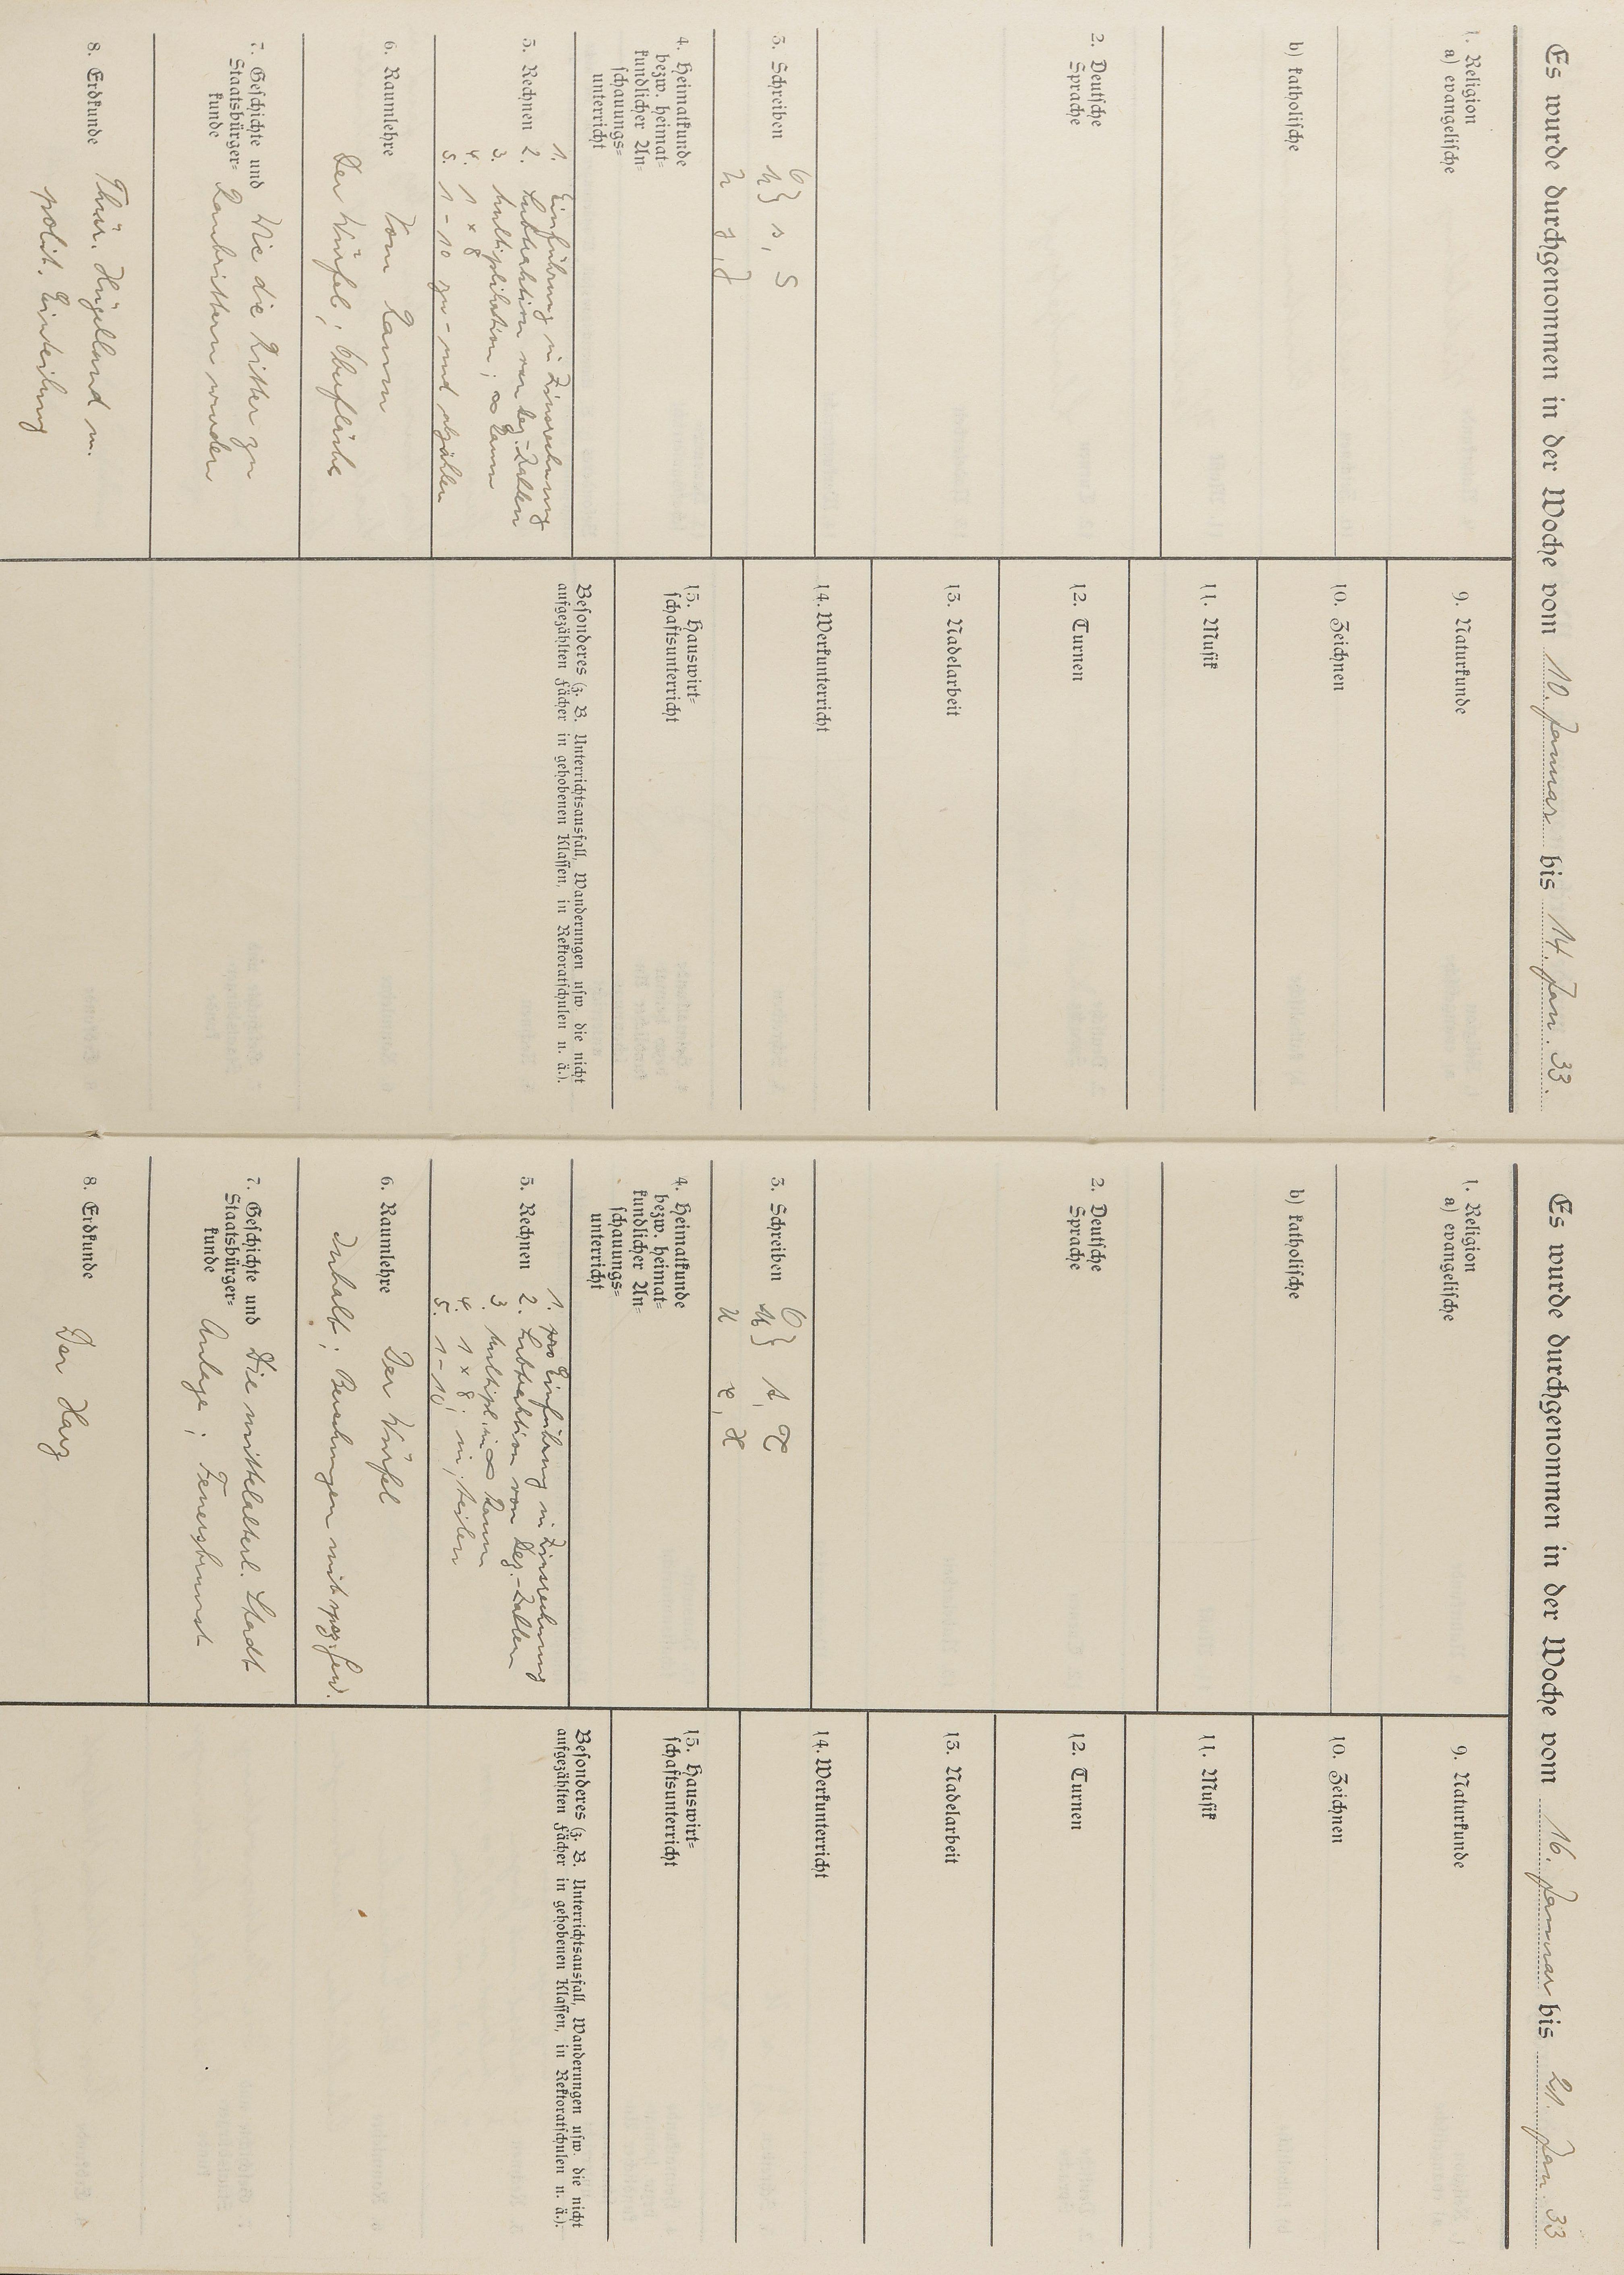 Es wurde durchgenommen in der Woche vom 10. Januar bis 14. Jan. 33.
1. Religion
a) evangelische
b) katholische
2. Deutsche
Sprache
3. Schreiben
s, S
4. Heimatkunde
bezw. heimat-
kundlicher An-
schauungs-
unterricht
5. Rechnen
1. Einführung in Zinsrechnung
2. Subtraktion von Dez.-Zahlen
3. Multiplikation; ∞ Raum
4. 1 x 8
5. 1 - 10 zu- und abzählen
6. Raumlehre
Vom Raum
Der Würfel; Oberfläche
7. Geschichte und
Staatsbürger-
kunde
Wie die Ritter zu
Raubrittern wurden
8. Erdkunde
Thür. Hügelland u.
polit. Einteilung
9. Naturkunde
10. Zeichnen
11. Musik
12. Turnen
13. Nadelarbeit
14. Werkunterricht
15. Hauswirt-
schaftsunterricht
Besonderes (z. B. Unterrichtsausfall, Wanderungen usw. die nicht
aufgezählten Fächer in gehobenen Klassen, in Rektoratschulen u. ä.).
Es wurde durchgenommen in der Woche vom 16. Januar bis 21. Jan. 33
1. Religion
a) evangelische
b) katholische
2. Deutsche
Sprache
3. Schreiben
t, T
x, X
4. Heimatkunde
bezw. heimat-
kundlicher An-
schauungs-
unterricht
5. Rechnen
1. pro Einführung in Zinsrechnung
2. Subtraktion von Dez.-Zahlen
3. Multipl. im ∞ Raum
4. 1 x 8; in; teilen
5. 1 - 10;
6. Raumlehre
Der Würfel
Inhalt; Berechnungen mit spez. Gew.
7. Geschichte und
Staatsbürger-
kunde
Die mittelalterl. Stadt
Anlage; Feuersbrunst
8. Erdkunde
Der Harz
9. Naturkunde
10. Zeichnen
11. Musik
12. Turnen
13. Nadelarbeit
14. Werkunterricht
15. Hauswirt-
schaftsunterricht
Besonderes (z. B. Unterrichtsausfall, Wanderungen usw. die nicht
aufgezählten Fächer in gehobenen Klassen, in Rektoratschulen u. ä.).